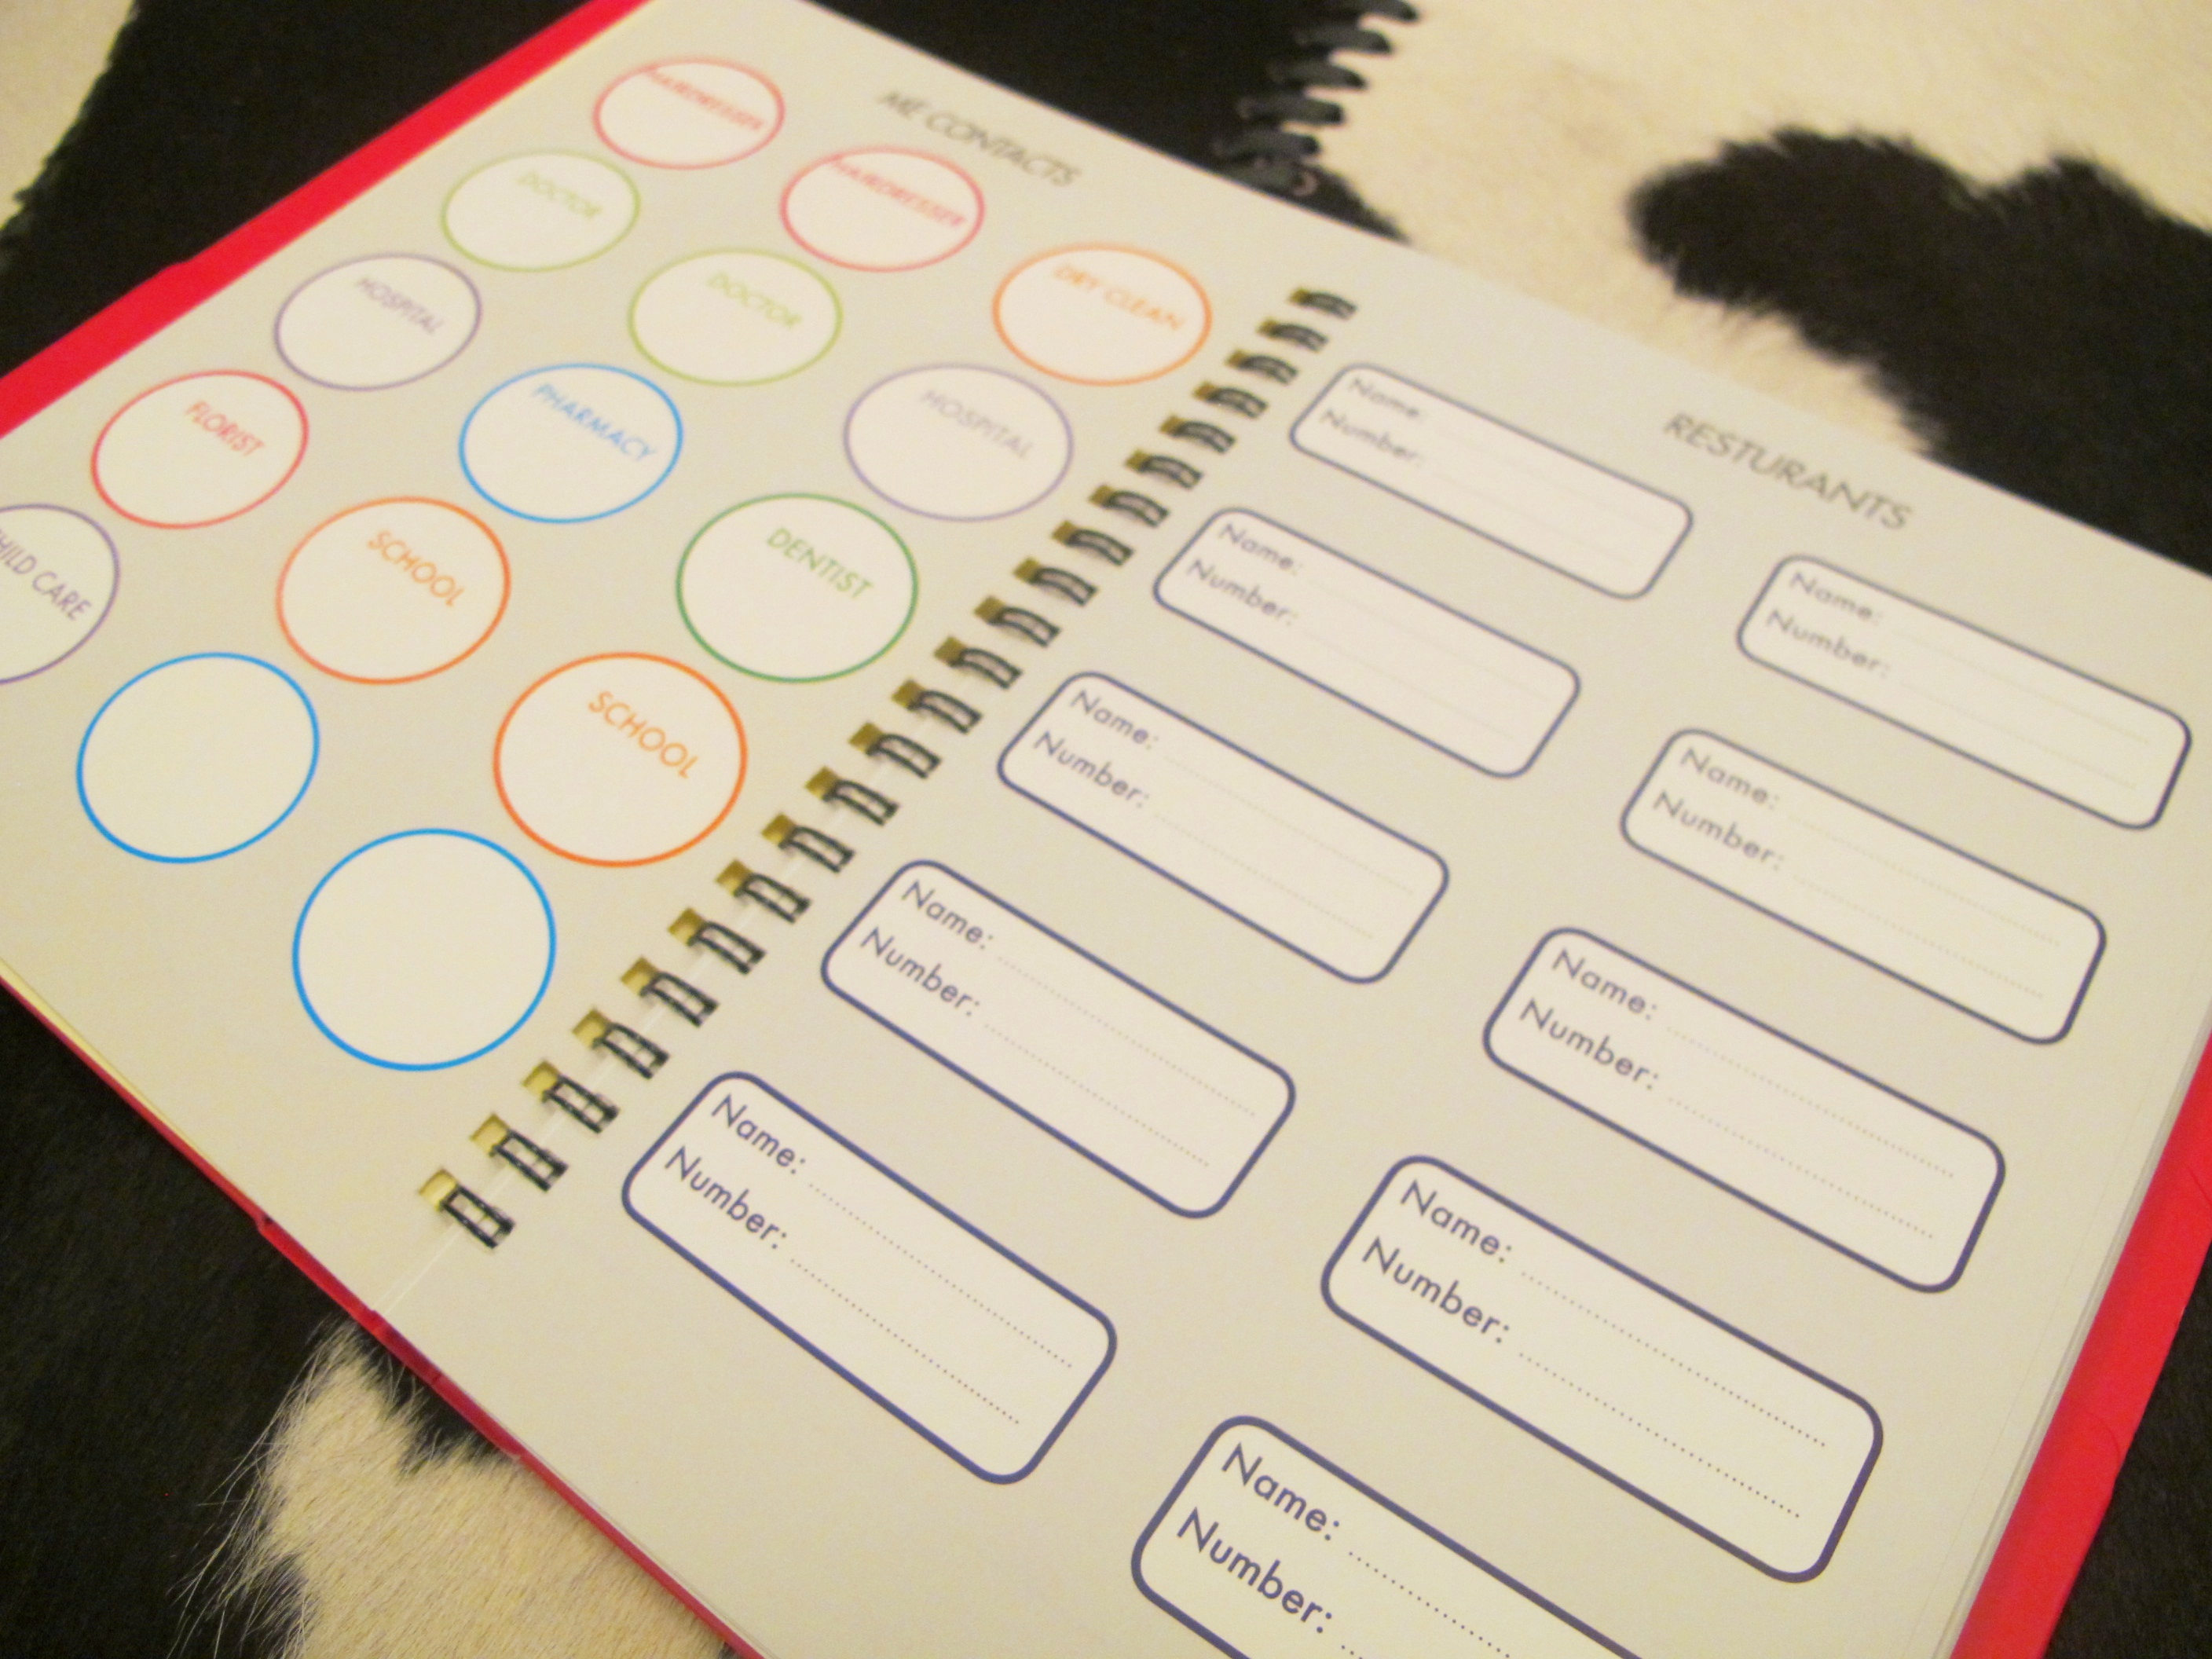 ME CONTACTS
HAIRDRESSER
HAIRDRESSER
DRY CLEAN
DOCTOR
DOCTOR
HOSPITAL
HOSPITAL
PHARMACY
DENTIST
FLORIST
SCHOOL
SCHOOL
CHILD CARE
RESTURANTS
Name:
Number:
Name:
Number:
Name:
Number:
Name:
Number:
Name:
Number:
Name:
Number:
Name:
Number:
Name:
Number:
Name:
Number:
Name:
Number: